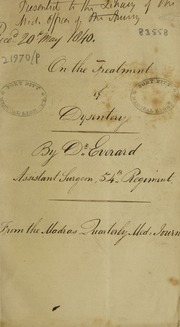 Presented to the Library of the
Med. Officer of the Army
Recd. 20th May 1840.
83558
21970/8
On the Treatment
of
Dysentery
By Dr. Everard
Assistant Surgeon, 54th Regiment,
From the Madras Quarterly Med. Journ